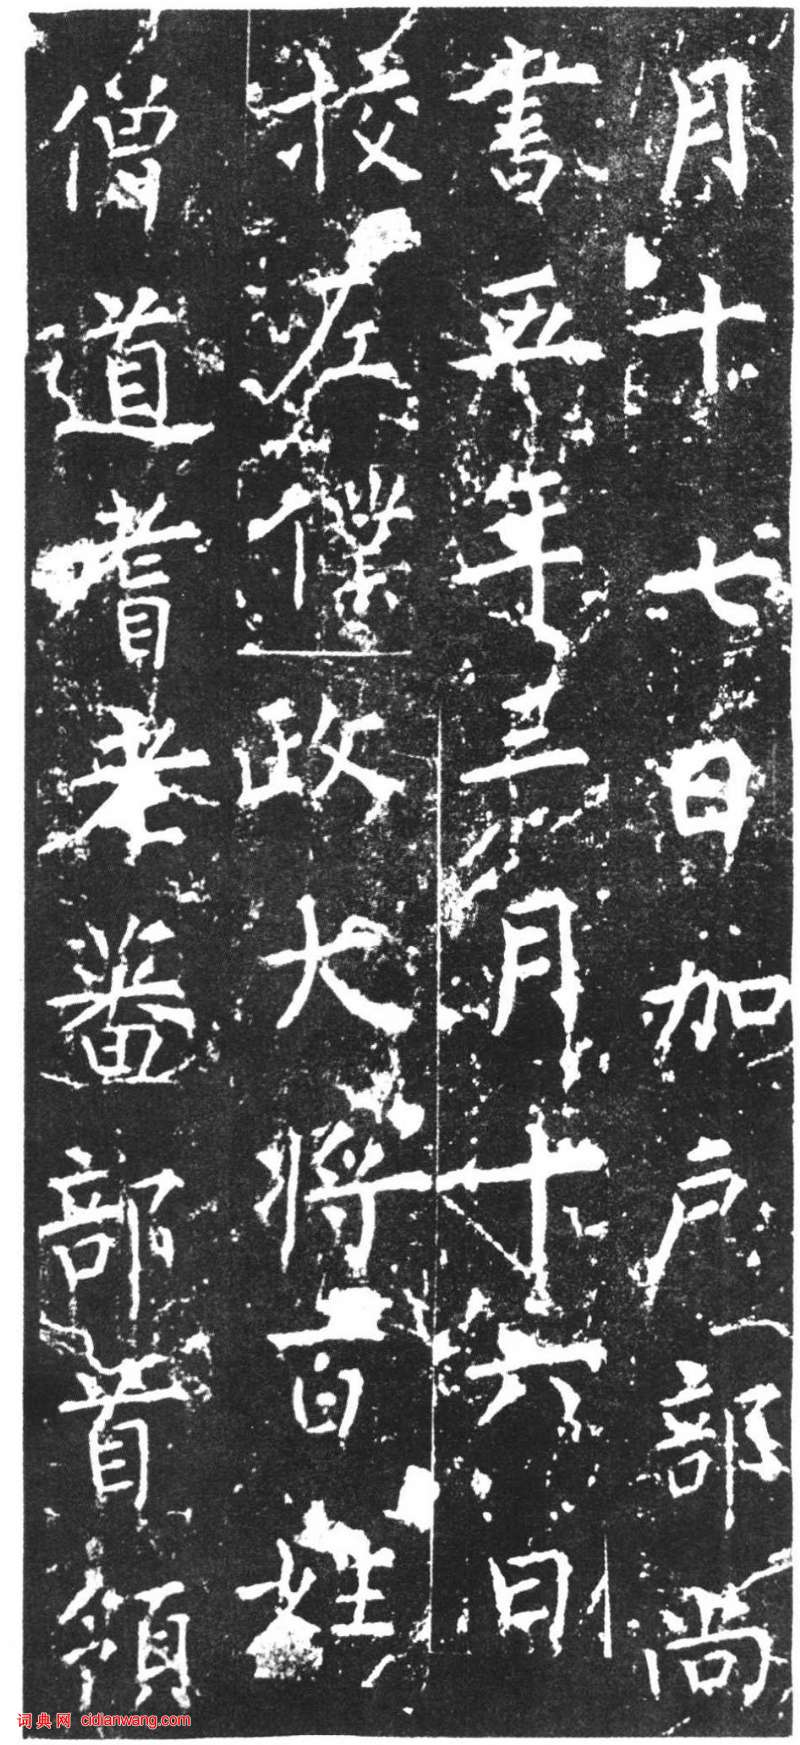 月十七日加戶部尚
書五年三月十六日
校左僕
政大將百姓
僧道耆老蕃部首領
词典网 cidianwang.com